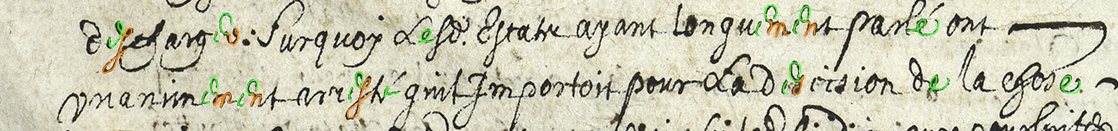 descharger: Surquoy Lesd. Estatz ayant longuement parlé ont
unanimement arresté quil Importoit pour La Decision de la chose